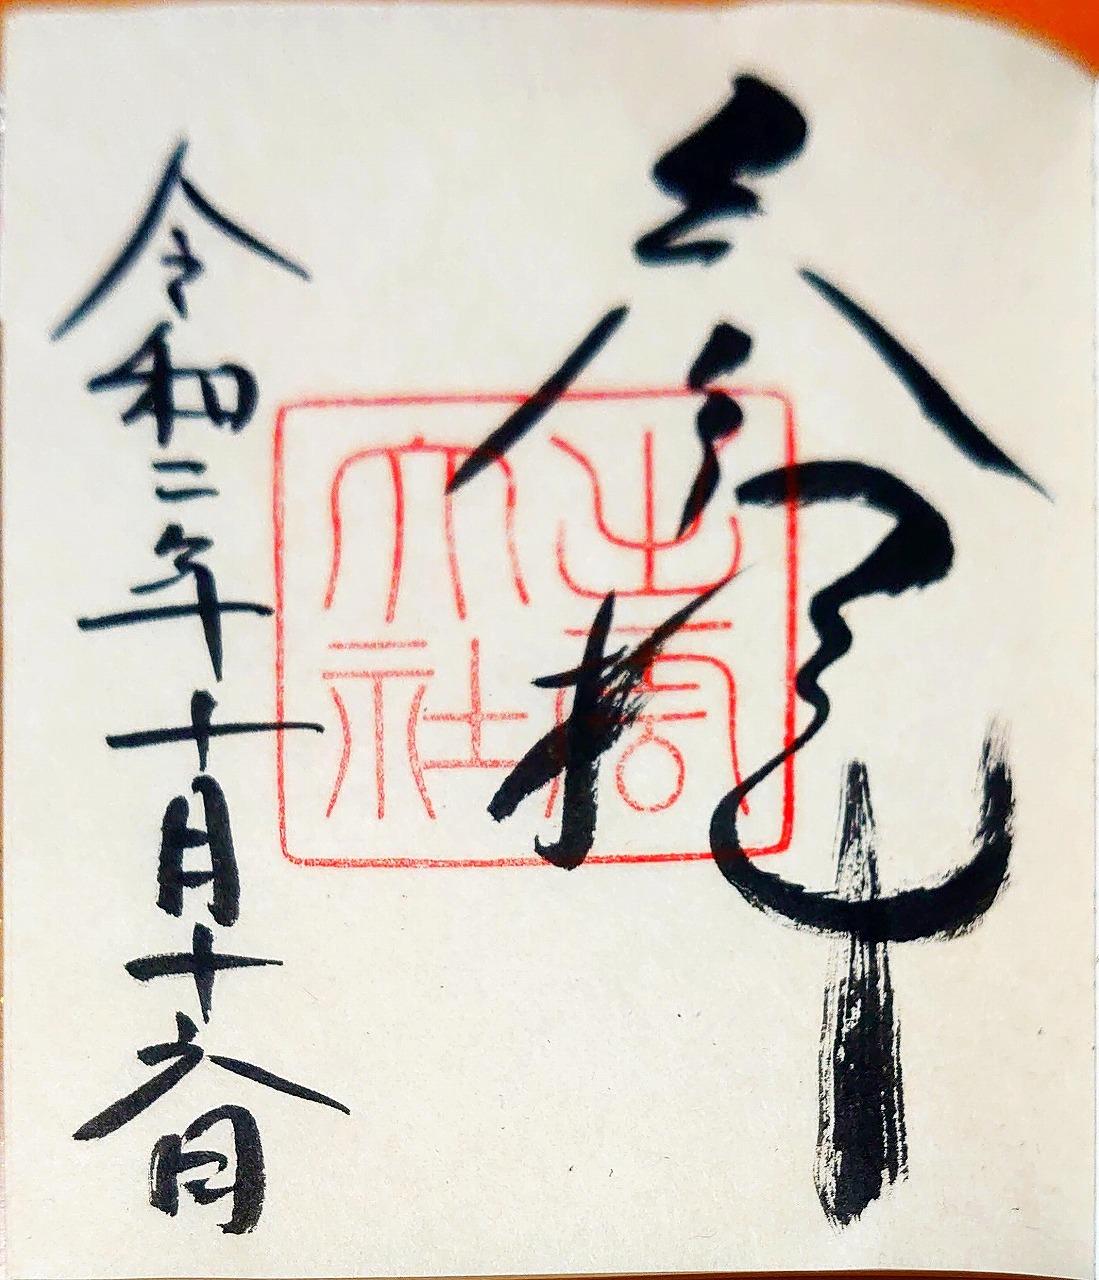 参拝
出雲
大社
令和二年十月十六日